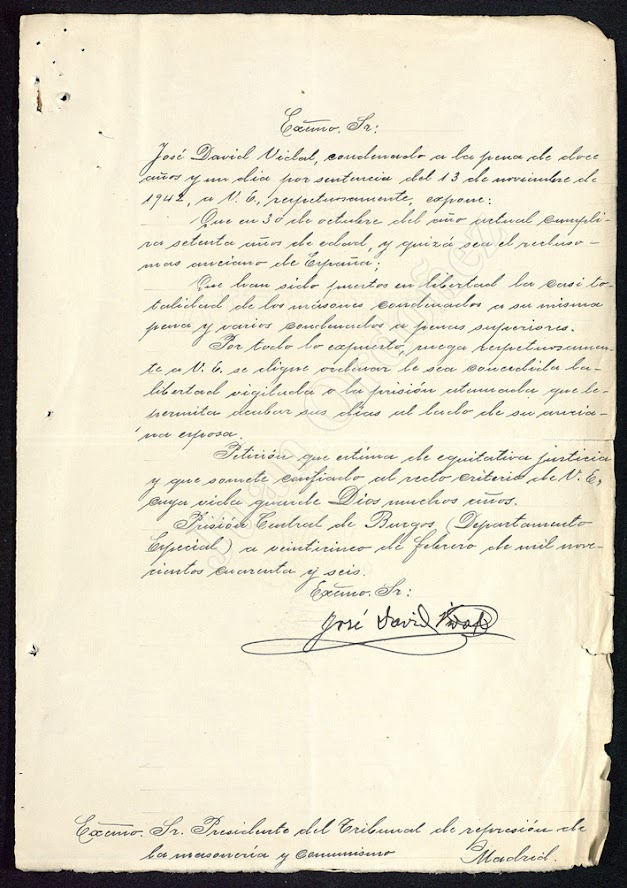 Excmo. Sr:
José David Vidal, condenado a la pena de doce
años y un día por sentencia del 13 de noviembre de
1942, a V. E., respetuosamente, expone:
Que en 30 de octubre del año actual cumpli-
ra setenta años de edad, y quizá sea el recluso
mas anciano de España;
Que han sido puestos en libertad la casi to-
talidad de los masones condenados a su misma
pena y varios condenados a penas superiores.
Por todo lo expuesto, ruega respetuosamen-
te a V. E. se digne ordenar le sea concedida la
libertad vigilada o la prisión atenuada que le
permita acabar sus días al lado de su ancia-
na esposa.
Petición que estima de equitativa justicia
y que somete confiado al recto criterio de V. E,
cuya vida guarde Dios muchos años.
Prisión Central de Burgos (Departamento
Especial) a veinticinco de febrero de mil nove-
cientos cuarenta y seis.
Excmo. Sr:
José David Vidal
Excmo. Sr. Presidente del Tribunal de represión de
la masonería y comunismo Madrid.